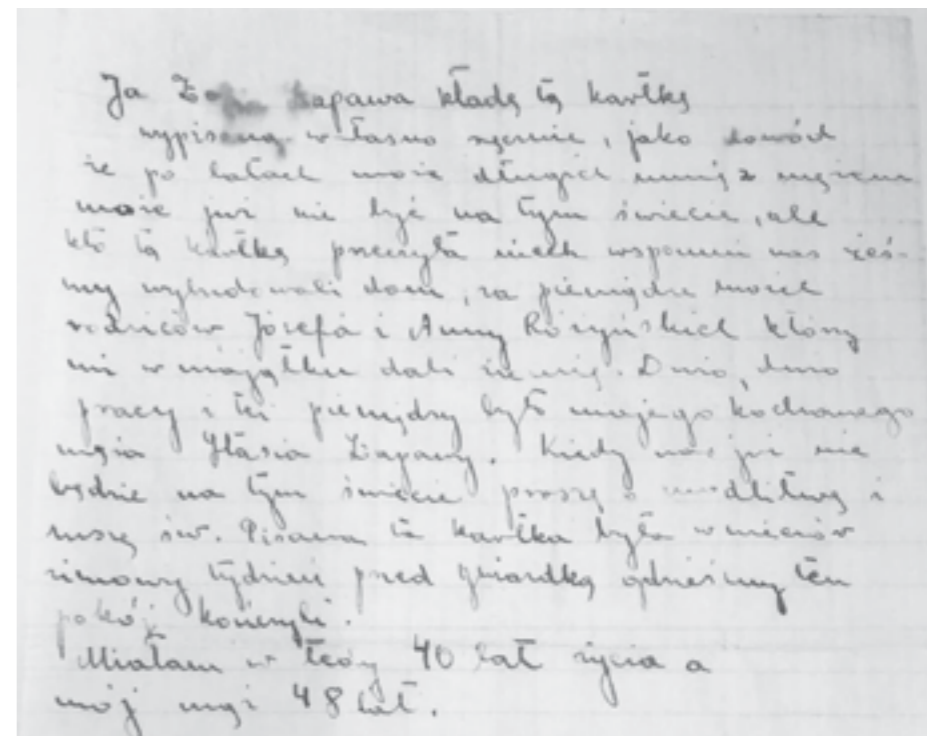 Ja Łapawa kładę tą kartkę
wypisaną własno ręcznie, jako dowód
że po latach może długich mnie z mężem
może już nie być na tym świecie, ale
kto tą kartkę przeczyta niech wspomni nas żeś-
my wybudowali dom, za pieniądze moich
rodziców Józefa i Anny którzy
mi w majątku dali ziemię. Dużo, dużo
pracy i też pieniędzy było mojego kochanego
męża Stasia Łapawy. Kiedy nas już nie
będzie na tym świecie proszę o modlitwę i
mszę św. Pisana ta kartka była wieczór
zimowy tydzień przed gwiazdką gdzieśmy ten
pokój kończyli.
Miałam w tedy 40 lat życia a
mój mąż 48 lat.